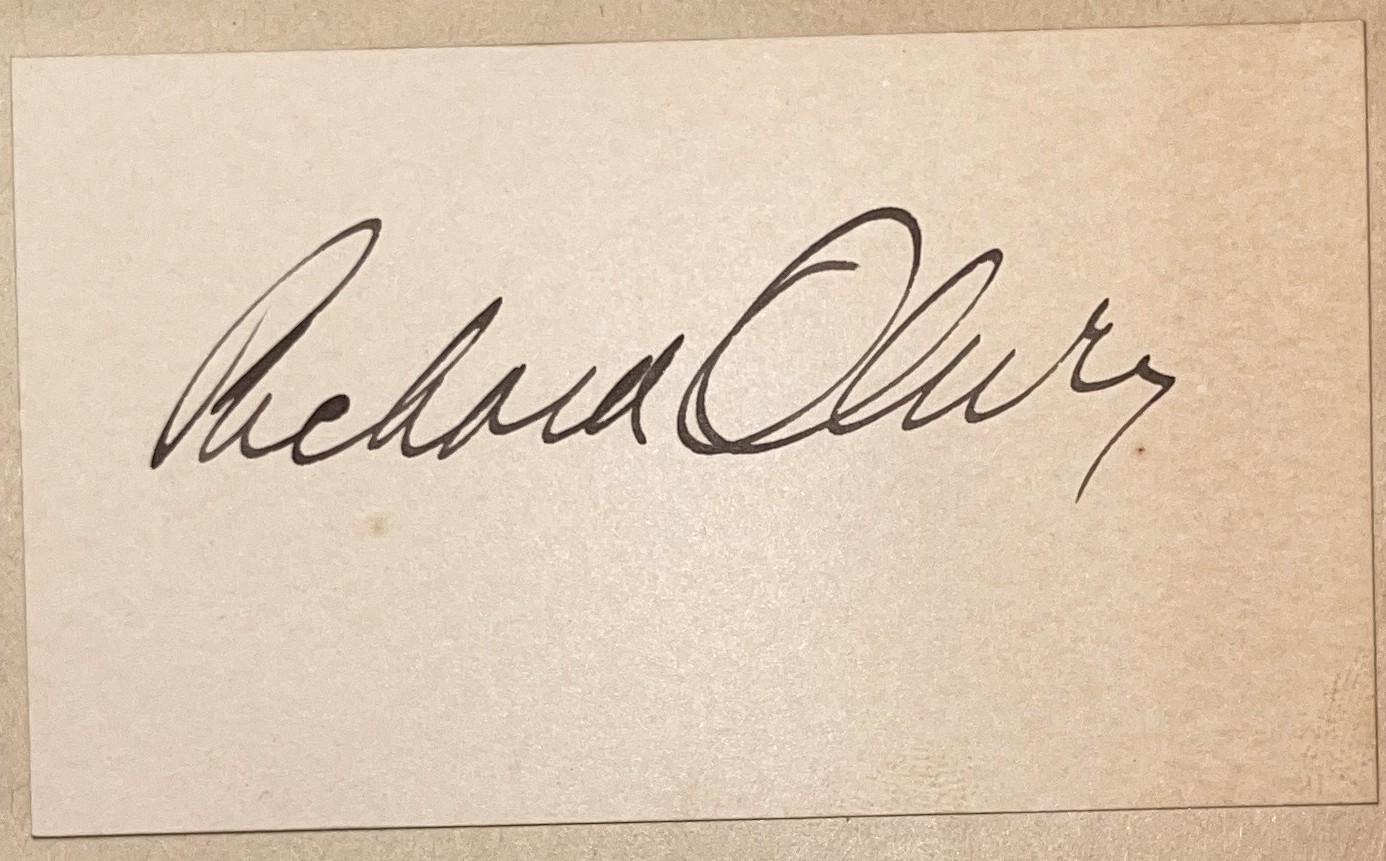 Richard Olney